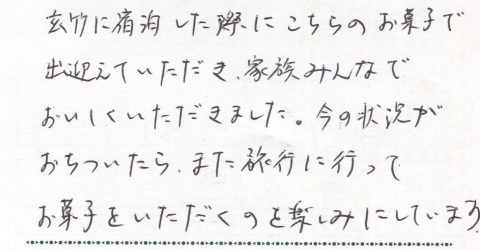 玄竹に宿泊した際にこちらのお菓子で
出迎えていただき、家族みんなで
おいしくいただきました。今の状況が
おちついたら、また旅行に行って
お菓子をいただくのを楽しみにしています